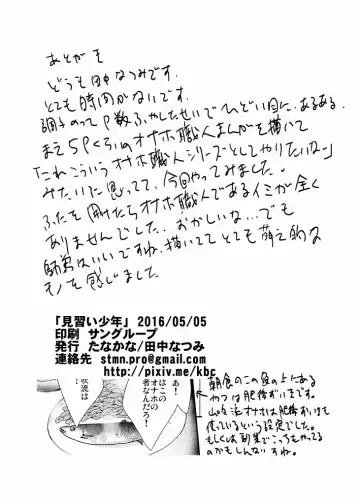 あとがき
どうも田中なつみです.
とても時間がないです.
調子のってP数ふやしたせいでひどい目に.あるある.
まえ5Pくらいのオナホ職人まんがを描いて
「これこういうオナホ職人シリーズとしてやりたいな〜」
みたいに思ってて、今回やってみました。
ふたを開けたらオナホ職人であるイミが全く
ありませんでした.. おかしいな...でも
師弟はいいですね.描いてて とても萌え的な
モノを感じました
「見習い少年」 2016/05/05
印刷 サングループ
発行 たなかな/田中なつみ
連絡先 stmn.pro@gmail.com
http://pixiv.me/kbc
あ!
はこの
オナホの
者なんだろ!
吹流は
朝食のこの魚の上にある
やつは肥後ずいきです。
オナホは肥後ずいきも
使っているという設定でした。
もしくは副業でこっちもやってる
のかもしんないすね。